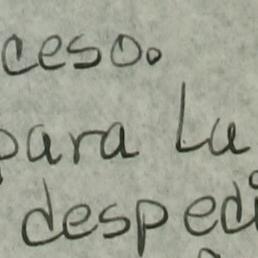 ceso.
para La
despedi